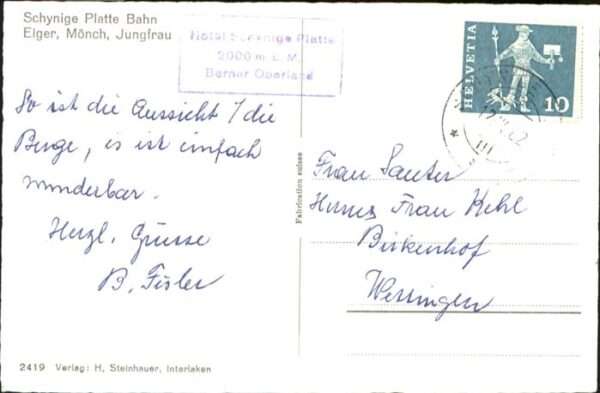 Schynige Platte Bahn
Eiger, Mönch, Jungfrau
Hotel Schynige Platte
2000 m ü. M.
Berner Oberland
HELVETIA
10
So ist die Aussicht / die
Berge, es ist einfach
wunderbar.
Herzl. Grüsse
B. Fisler
Fabrication suisse
Frau Sauter
Frau Kehl
Birkenhof
Wettingen
2419 Verlag: H. Steinhauer, Interlaken